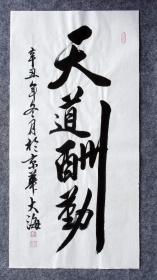 天道酬勤
辛丑年冬月於京華大海